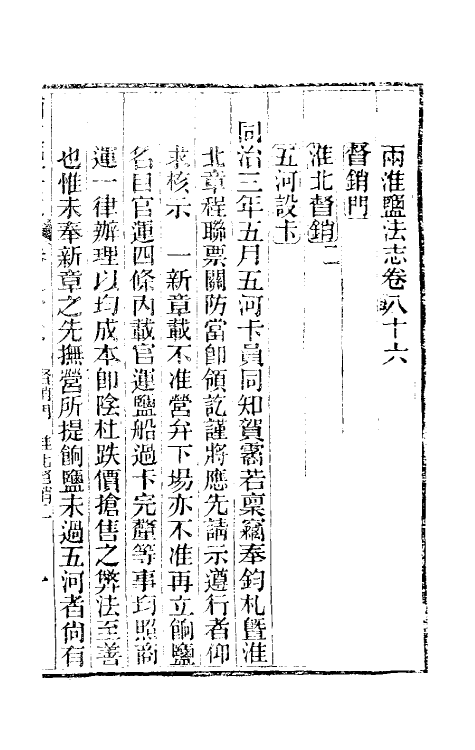 兩淮鹽法志卷八十六
督銷門
淮北督銷二
五河設卡
同治三年五月五河卡員同知賀霱若稟竊奉鈞札曁淮
北章程聯票關防當卽領訖謹將應先請示遵行者仰
求核示　一新章載不准營弁下場亦不准再立餉鹽
名目官運四條內載官運鹽船過卡完釐等事均照商
運一律辦理以均成本卽陰杜跌價搶售之弊法至善
也惟未奉新章之先撫營所提餉鹽未過五河者尙有
督銷門　淮北督銷二　一